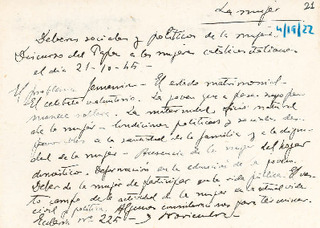 La mujer
21
4/19/22
Deberes sociales y políticos de la mujer.
Discurso del Papa a las mujeres católicas italianas
el día 21-10-45 -
El problema femenino - El estado matrimonial -
El celibato voluntario. La joven que a pesar suyo per-
manece soltera. La maternidad, oficio natural
de la mujer - Condiciones políticas y sociales des-
favorables a la santidad de la familia y a la digni-
dad de la mujer - Ausencia de la mujer del hogar
doméstico. Deformación en la educación de la joven.
Deber de la mujer de participar en la vida pública. El vas-
to campo de la actividad de la mujer en la actual vida
civil y política.
Ecclesia nº 225 - 3 Noviembre